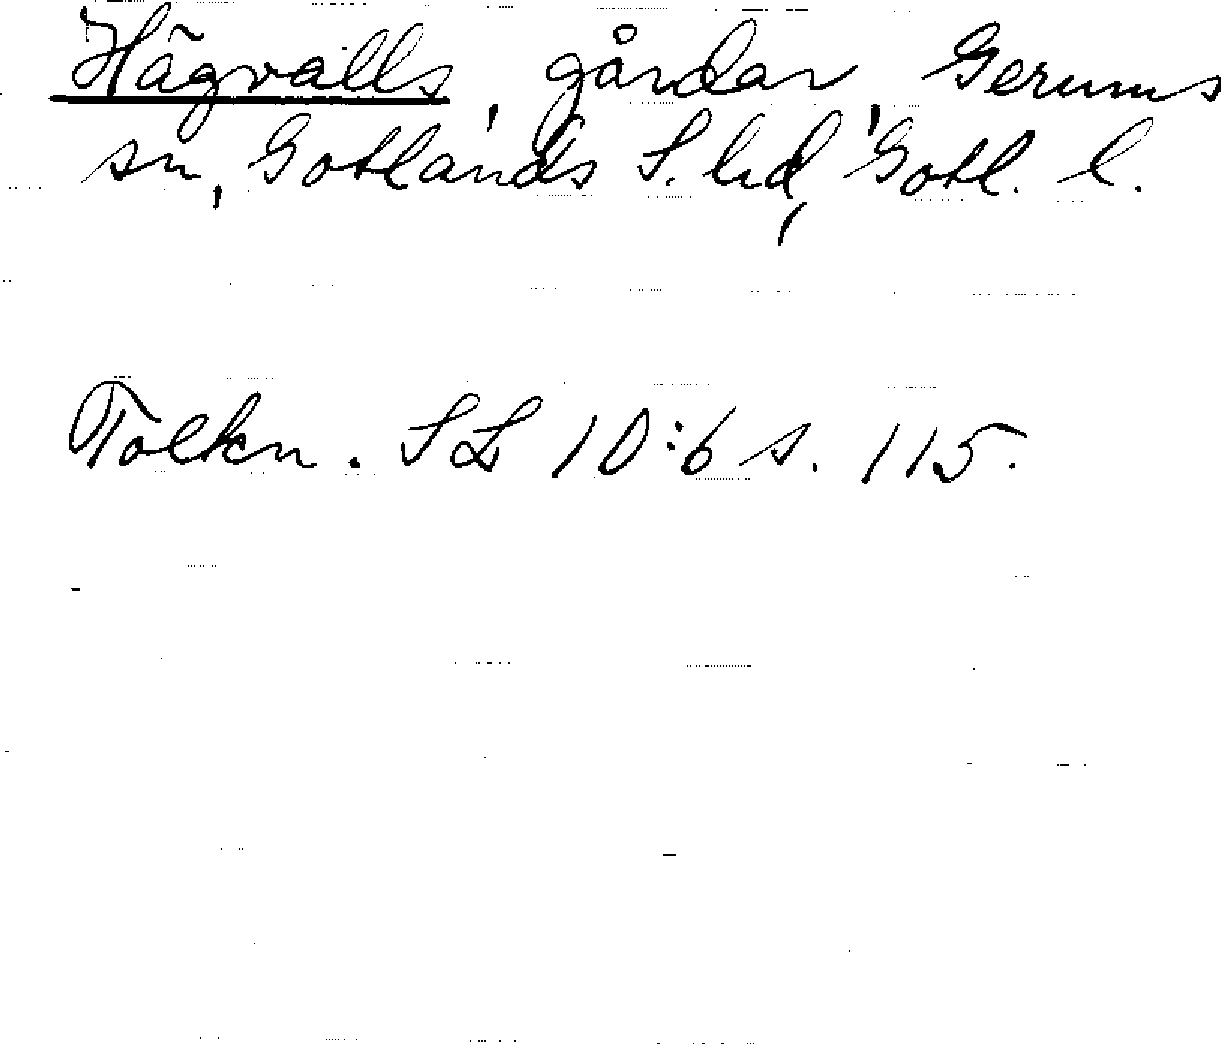 Hägvalls, gårdar, Gerums
sn, Gotlands S. hd, Gotl. l.
Tolkn. SL 10:6 s. 115.